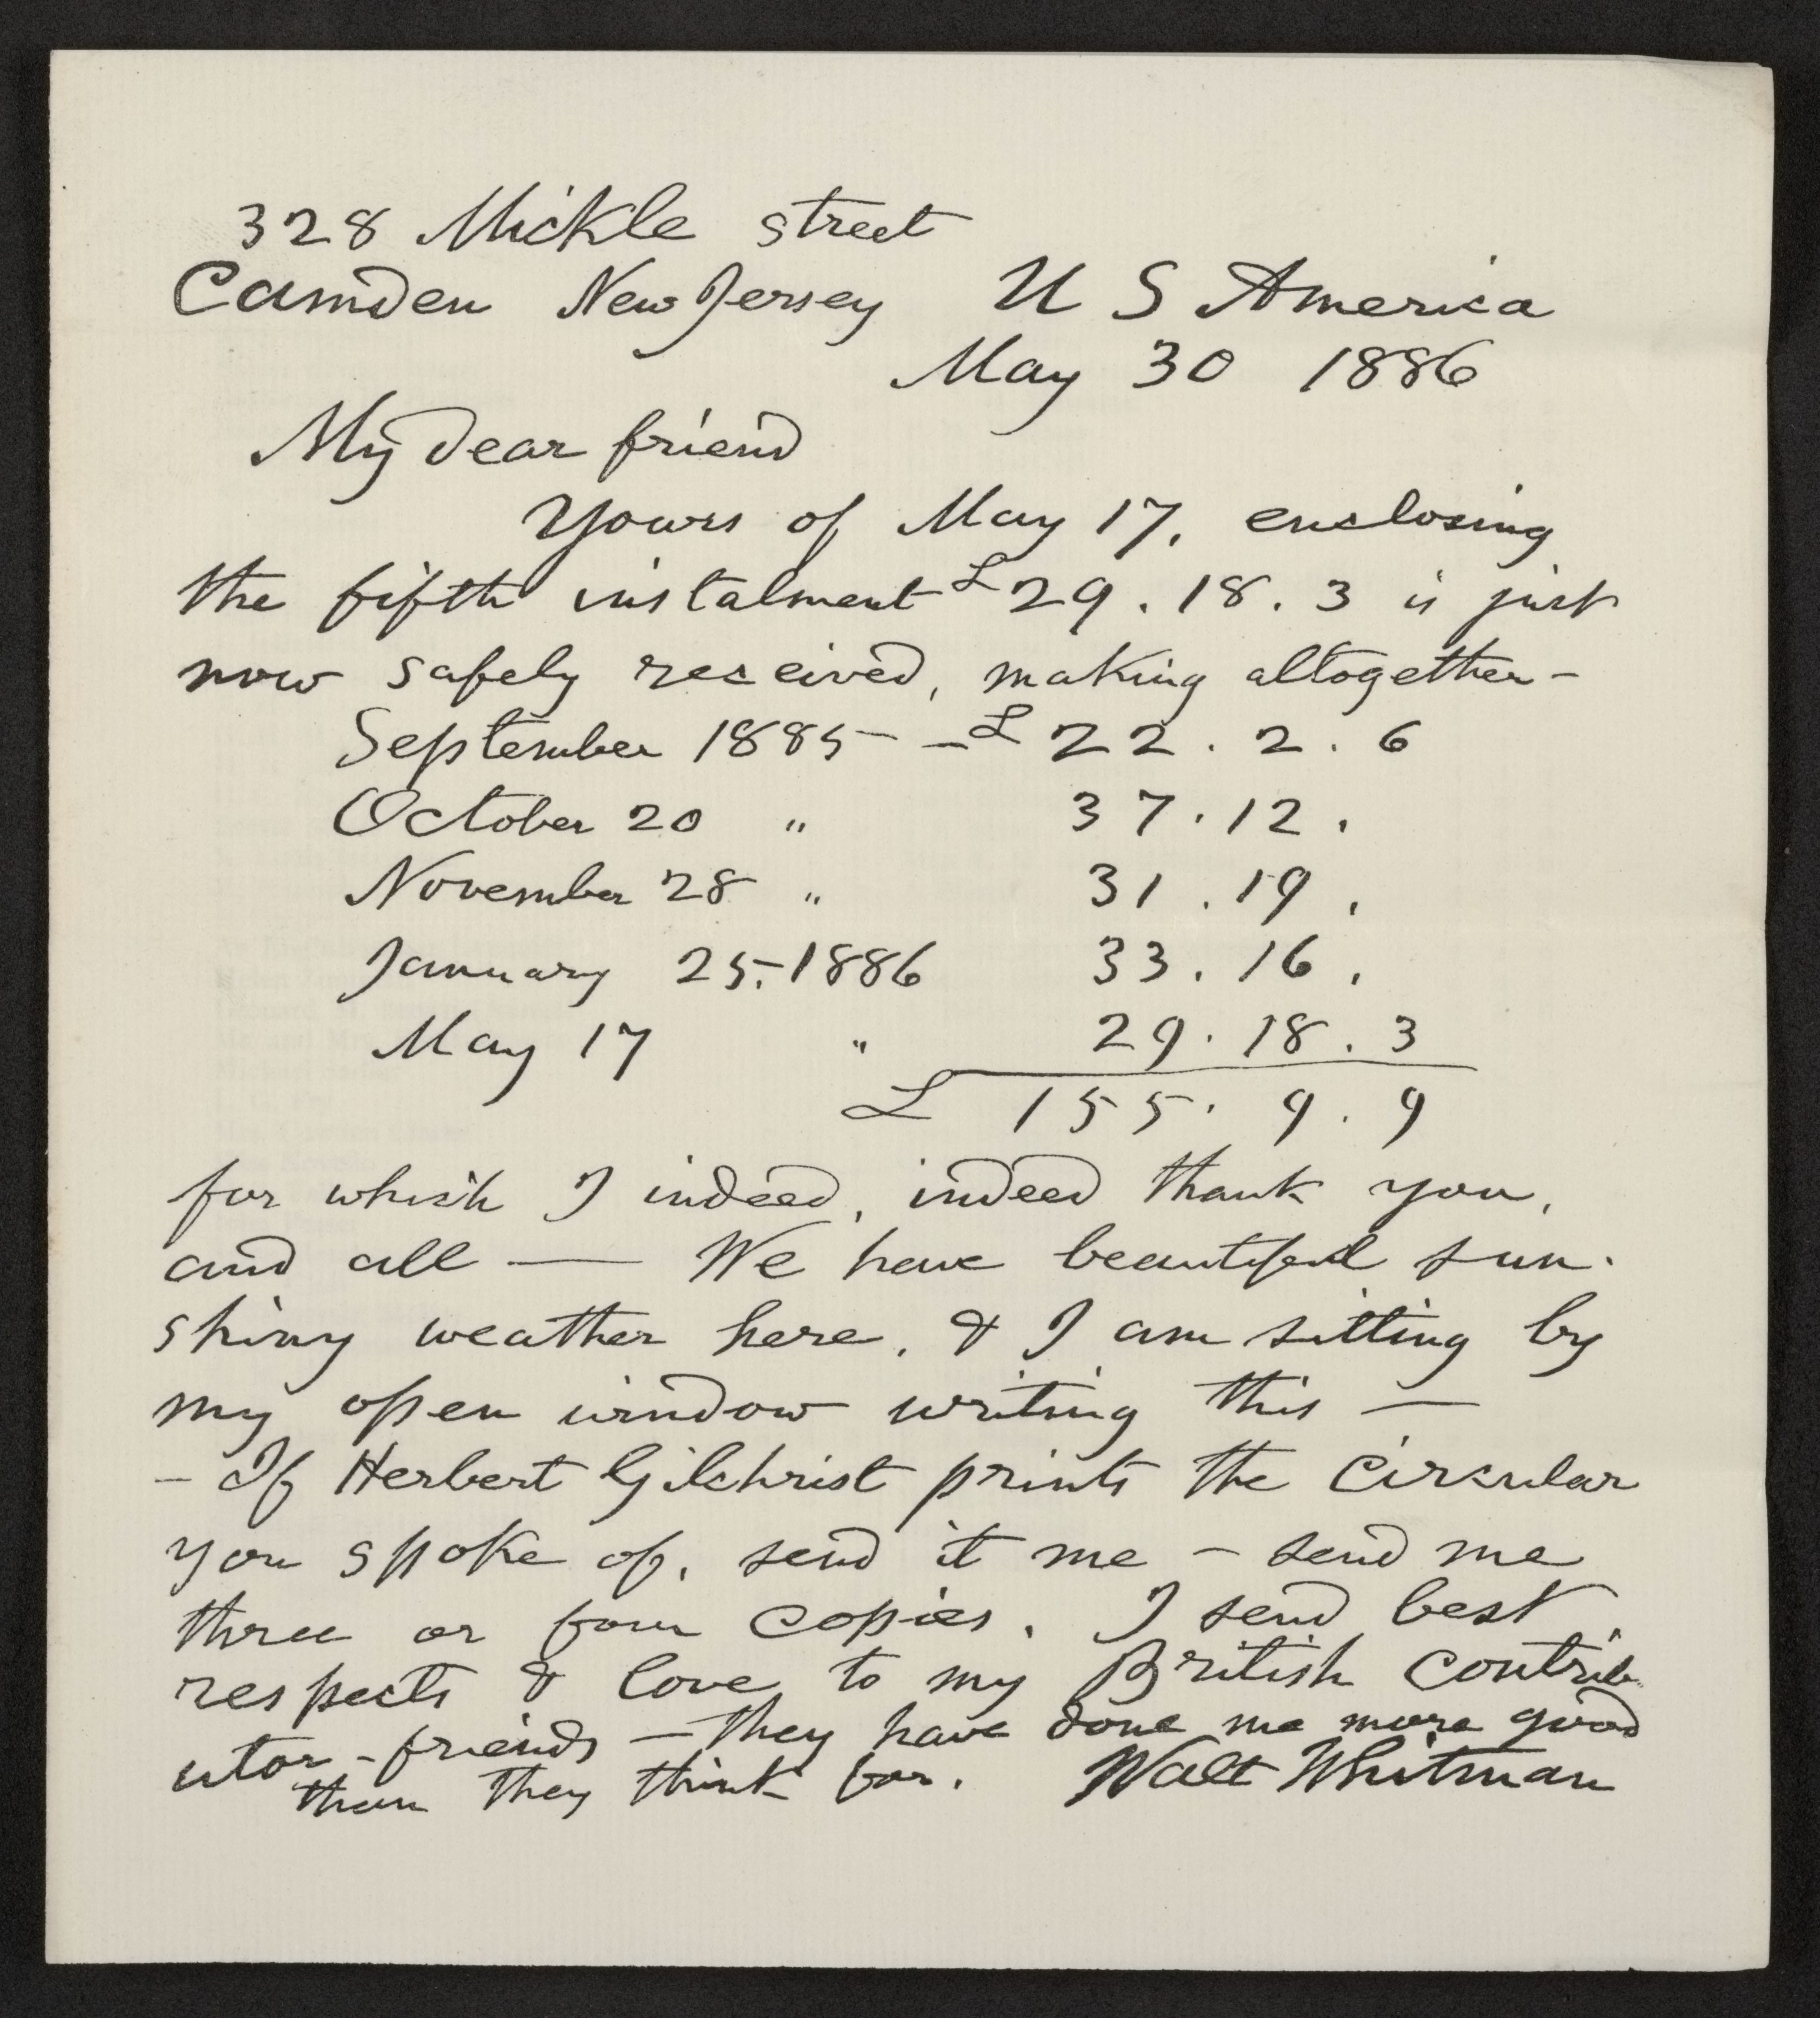 328 Mickle street
Camden New Jersey U S America
May 30 1886
My dear friend
Yours of May 17, enclosing
the fifth instalment £29.18.3 is just
now safely received, making altogether—
September 1885 — £22.2.6
October 20 " 37.12.
November 28 " 31.19.
January 25, 1886 33.16.
May 17 " 29.18.3
£ 155.9.9
for which I indeed, indeed thank you,
and all — We have beautiful sun-
shiny weather here, & I am sitting by
my open window writing this —
– If Herbert Gilchrist prints the circular
you spoke of, send it me – send me
three or four copies. I send best
respects & love to my British contrib-
utor-friends — they have done me more good
than they think for. Walt Whitman